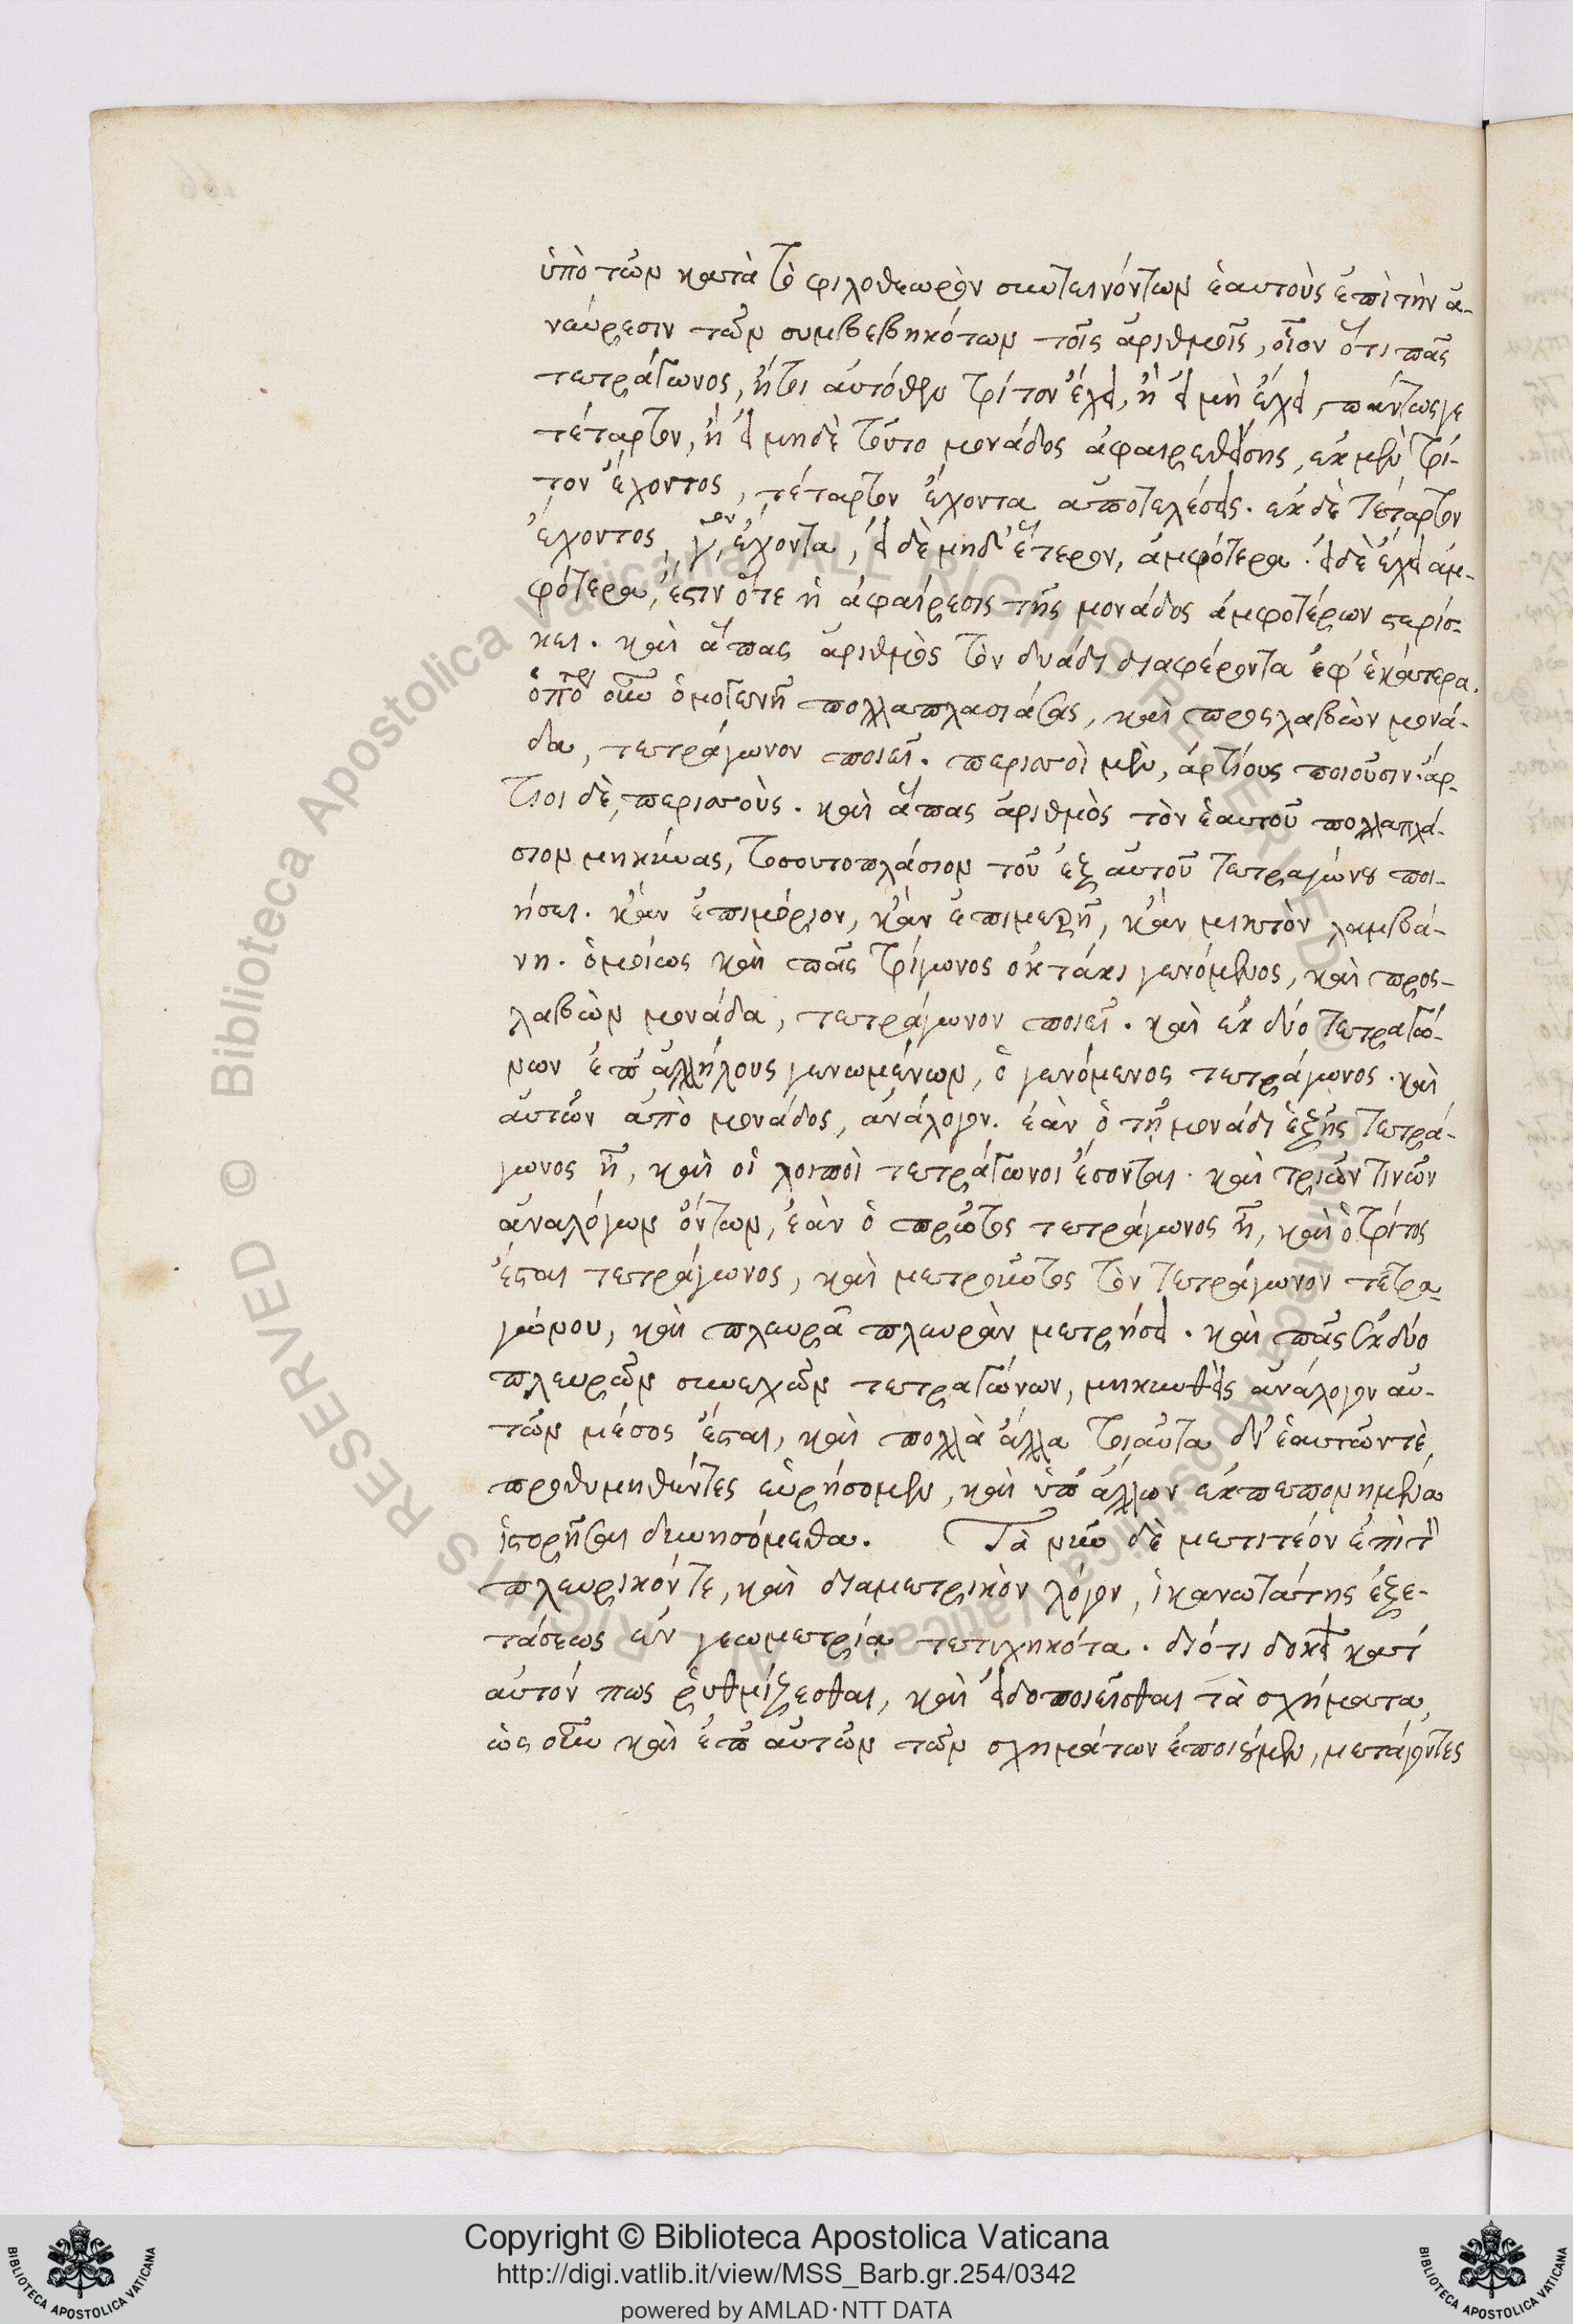 ὑπὸ τῶν κατὰ τὸ φιλοθεωρὸν συντεινόντων ἑαυτοὺς ἐπὶ τὴν ἀ-
νεύρεσιν τῶν συμβεβηκότων τοῖς ἀριθμοῖς, οἷον ὅτι πᾶς
τετράγωνος, ἤτοι αὐτόθεν τρίτον ἔχει, ἢ εἰ μὴ ἔχει, πάντως γε
τέταρτον, ἢ εἰ μηδὲ τοῦτο μονάδος ἀφαιρεθείσης, ἐκ μὲν τρί-
τον ἔχοντος, τέταρτον ἔχοντα ἀποτελέσει. ἐκ δὲ τέταρτον
ἔχοντος, γ ον ἔχοντα, εἰ δὲ μηδ' ἕτερον, ἀμφότερα. εἰ δὲ ἔχει ἀμ-
φότερα, ἔστιν ὅτε ἡ ἀφαίρεσις τῆς μονάδος ἀμφοτέρων στερίσ-
κει. καὶ ἅπας ἀριθμὸς τὸν δυάδι διαφέροντα ἐφ' ἑκάτερα.
οὖν ὁμογενῆ πολλαπλασιάσας, καὶ προσλαβὼν μονά-
δα, τετράγωνον ποιεῖ. περισσοὶ μὲν, ἀρτίους ποιοῦσιν. ἄρ-
τιοι δὲ, περισσοὺς. καὶ ἅπας ἀριθμὸς τὸν ἑαυτοῦ πολλαπλά-
σιον μηκύνας, τοσουτοπλάσιον τοῦ ἐξ αὐτοῦ τετραγώνου ποι-
ήσει. κἂν ἐπιμόριον, κἂν ἐπιμερῆ, κἂν μικτὸν λαμβά-
νη. ὁμοίως καὶ πᾶς τρίγωνος ὀκτάκι γενόμενος, καὶ προς-
λαβὼν μονάδα, τετράγωνον ποιεῖ. καὶ ἐκ δύο τετραγώ-
νων ἐπ' ἀλλήλους γενωμένων, ὁ γενόμενος τετράγωνος. καὶ
αὐτῶν ἀπὸ μονάδος, ἀνάλογον. ἐὰν ὁ τῇ μονάδι ἑξῆς τετρά-
γωνος ᾖ, καὶ οἱ λοιποὶ τετράγωνοι ἔσονται. καὶ τριῶν τινῶν
ἀναλόγων ὄντων, ἐὰν ὁ πρῶτος τετράγωνος ᾖ, καὶ ὁ τρίτος
ἔσται τετράγωνος, καὶ μετροῦντος τὸν τετράγωνον τετρα-
γώνου, καὶ πλευρᾶ πλευρὰν μετρήσει. καὶ πᾶς ἐκ δύο
πλευρῶν συνεχῶν τετραγώνων, μηκυνθεὶς ἀνάλογον αὐ-
τῶν μέσος ἔσται, καὶ πολλὰ ἄλλα τοιαῦτα δι' ἑαυτῶν τὲ
προθυμηθέντες εὑρήσομεν, καὶ ὑπ' ἄλλων ἐκπεπονημένα
ἱστορῆσαι δυνησόμεθα. Τὰ νῦν δὲ μετιτέον ἐπὶ τ
πλευρικόν τε, καὶ διαμετρικὸν λόγον, ἱκανωτάτης ἐξε-
τάσεως ἐν γεωμετρίᾳ τετυχηκότα. διότι δοκεῖ κατ'
αὐτόν πως ῥυθμίζεσθαι, καὶ εἰδοποιεῖσθαι τὰ σχήματα,
ὡς οὖν καὶ ἐπ' αὐτῶν τῶν σχημάτων ἐποιοῦμεν, μετάγοντες
Copyright © Biblioteca Apostolica Vaticana
http://digi.vatlib.it/view/MSS_Barb.gr.254/0342
powered by AMLAD·NTT DATA
BIBLIOTECA APOSTOLICA VATICANA
BIBLIOTECA APOSTOLICA VATICANA
© Biblioteca Apostolica Vaticana ALL RIGHTS RESERVED
© Biblioteca Apostolica Vaticana ALL RIGHTS RESERVED